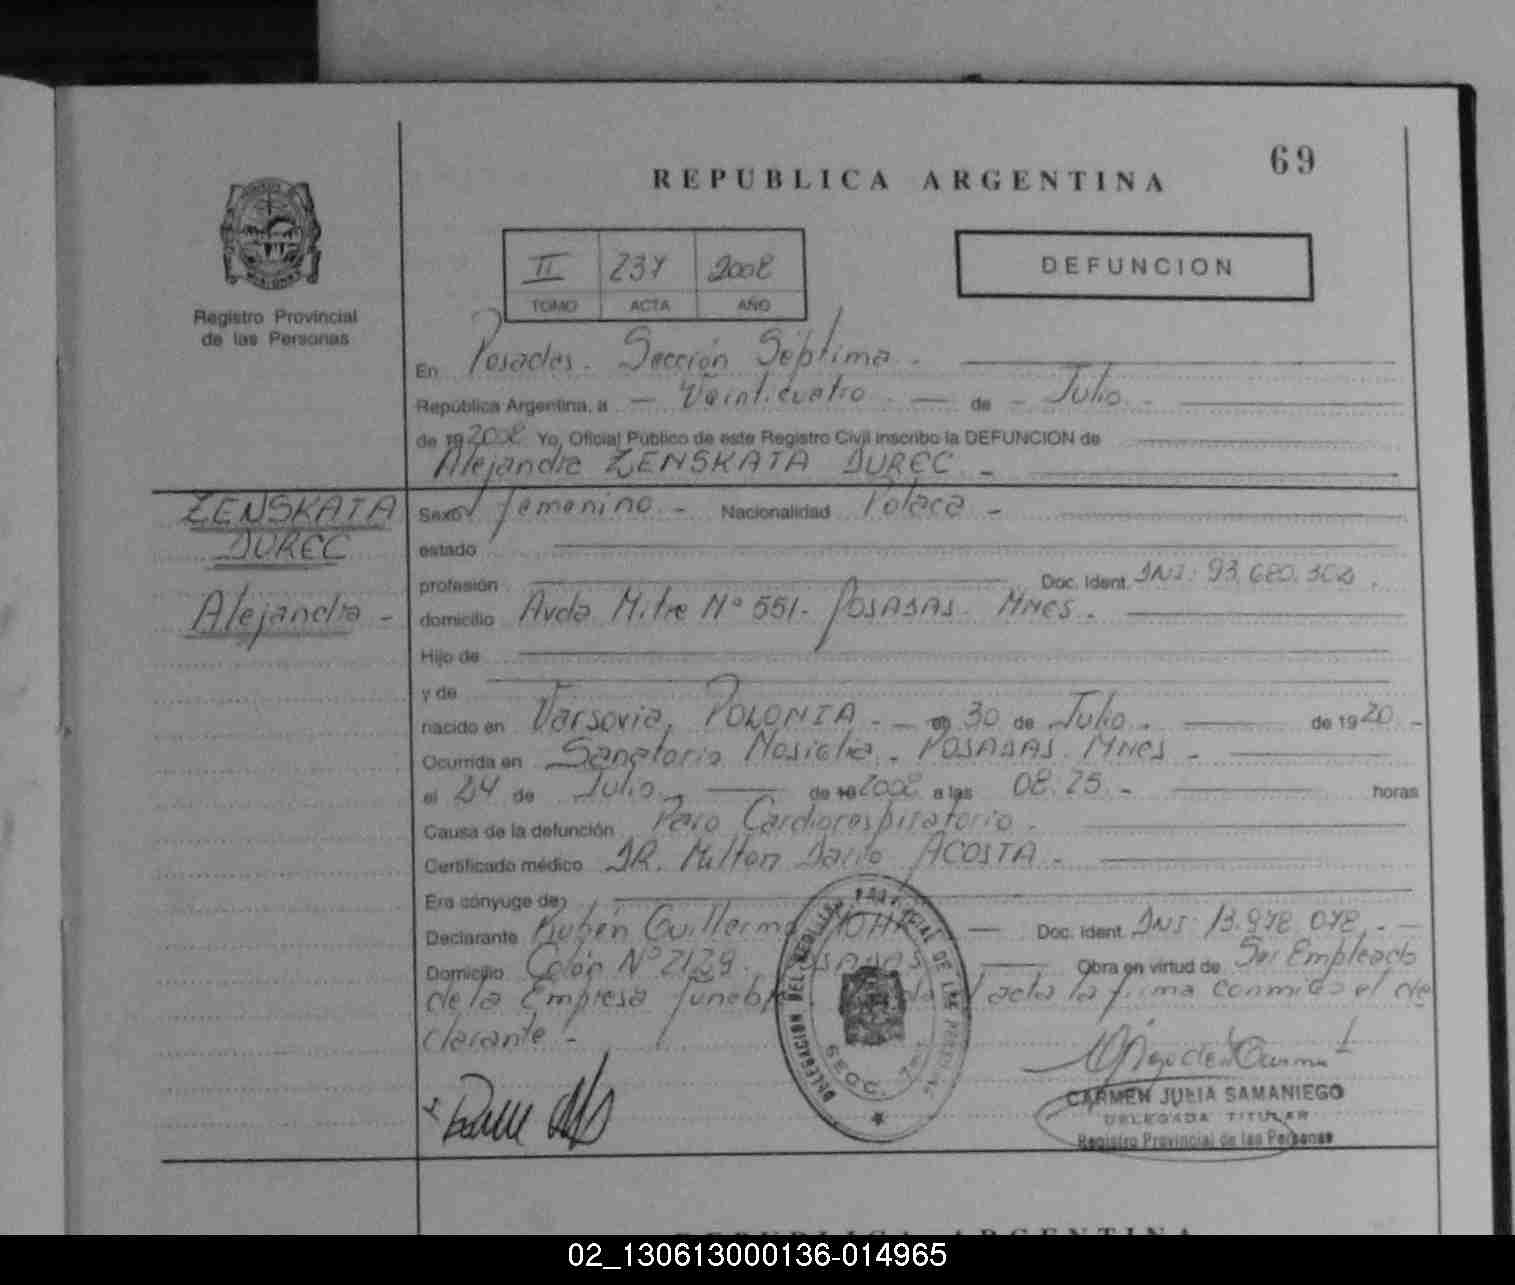 69
REPUBLICA ARGENTINA
II 237 2008
DEFUNCION
TOMO ACTA AÑO
Registro Provincial
de las Personas
En Posadas. Sección Séptima.
República Argentina, a - Veinticuatro - de - Julio -
de 19 2008 Yo, Oficial Público de este Registro Civil inscribo la DEFUNCION de
Alejandra ZENSKATA DUREC -
ZENSKATA
DUREC
Alejandra -
Sexo femenino - Nacionalidad Polaca -
estado
profesión Doc. Ident. DNI: 93.680.302.
domicilio Avda Mitre Nº 551 - POSADAS. MNES -
Hijo de
y de
nacido en Varsovia, POLONIA - - en 30 de Julio - de 1920 -
Ocurrida en Sanatorio Nosiglia. POSADAS. MNES -
el 24 de Julio - de 19 2008 a las 08:25 - horas
Causa de la defunción Paro Cardiorespiratorio.
Certificado médico DR. Milton Dario ACOSTA -
Era cónyuge de
Declarante Rubén Guillermo MOHR - Doc. Ident. DNI: 13.978.078. -
Domicilio Colón Nº 2129. POSADAS Obra en virtud de Ser Empleado
de la Empresa fúnebre acta la firma conmigo el de
clarante -
DELEGACION DEL REGISTRO PROVINCIAL DE LAS PERSONAS
SECC. 7ma
CARMEN JULIA SAMANIEGO
DELEGADA TITULAR
Registro Provincial de las Personas
REPUBLICA ARGENTINA
02_130613000136-014965